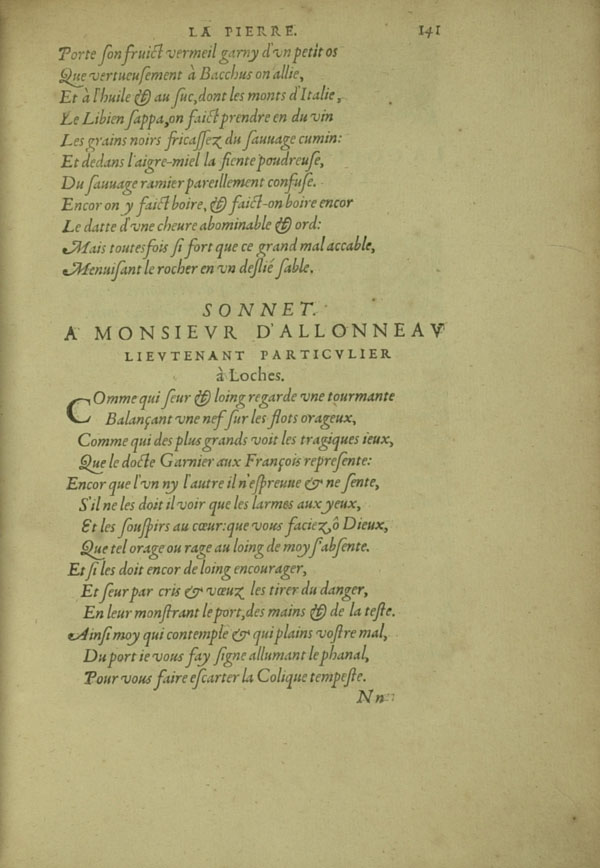 LA PIERRE. 141
Porte ſon fruict vermeil garny d'vn petit os
Que vertueuſement à Bacchus on allie,
Et à l'huile & au ſuc, dont les monts d'Italie,
Le Libien ſappa, on faict prendre en du vin
Les grains noirs fricaſſez du ſauuage cumin:
Et dedans l'aigre-miel la fiente poudreuſe,
Du ſauuage ramier pareillement confuſe.
Encor on y faict boire, & faict-on boire encor
Le datte d'vne cheure abominable & ord:
Mais toutesfois ſi fort que ce grand mal accable,
Menuiſant le rocher en vn deſlié ſable.
SONNET.
A MONSIEVR D'ALLONNEAV
LIEVTENANT PARTICVLIER
à Loches.
COmme qui ſeur & loing regarde vne tourmante
Balançant vne nef ſur les flots orageux,
Comme qui des plus grands voit les tragiques ieux,
Que le docte Garnier aux François repreſente:
Encor que l'vn ny l'autre il n'eſpreuue & ne ſente,
S'il ne les doit il voir que les larmes aux yeux,
Et les ſouſpirs au cœur: que vous faciez, ô Dieux,
Que tel orage ou rage au loing de moy ſ'abſente.
Et ſi les doit encor de loing encourager,
Et ſeur par cris & vœuz les tirer du danger,
En leur monſtrant le port, des mains & de la teſte.
Ainſi moy qui contemple & qui plains voſtre mal,
Du port ie vous fay ſigne allumant le phanal,
Pour vous faire eſcarter la Colique tempeſte.
Nn